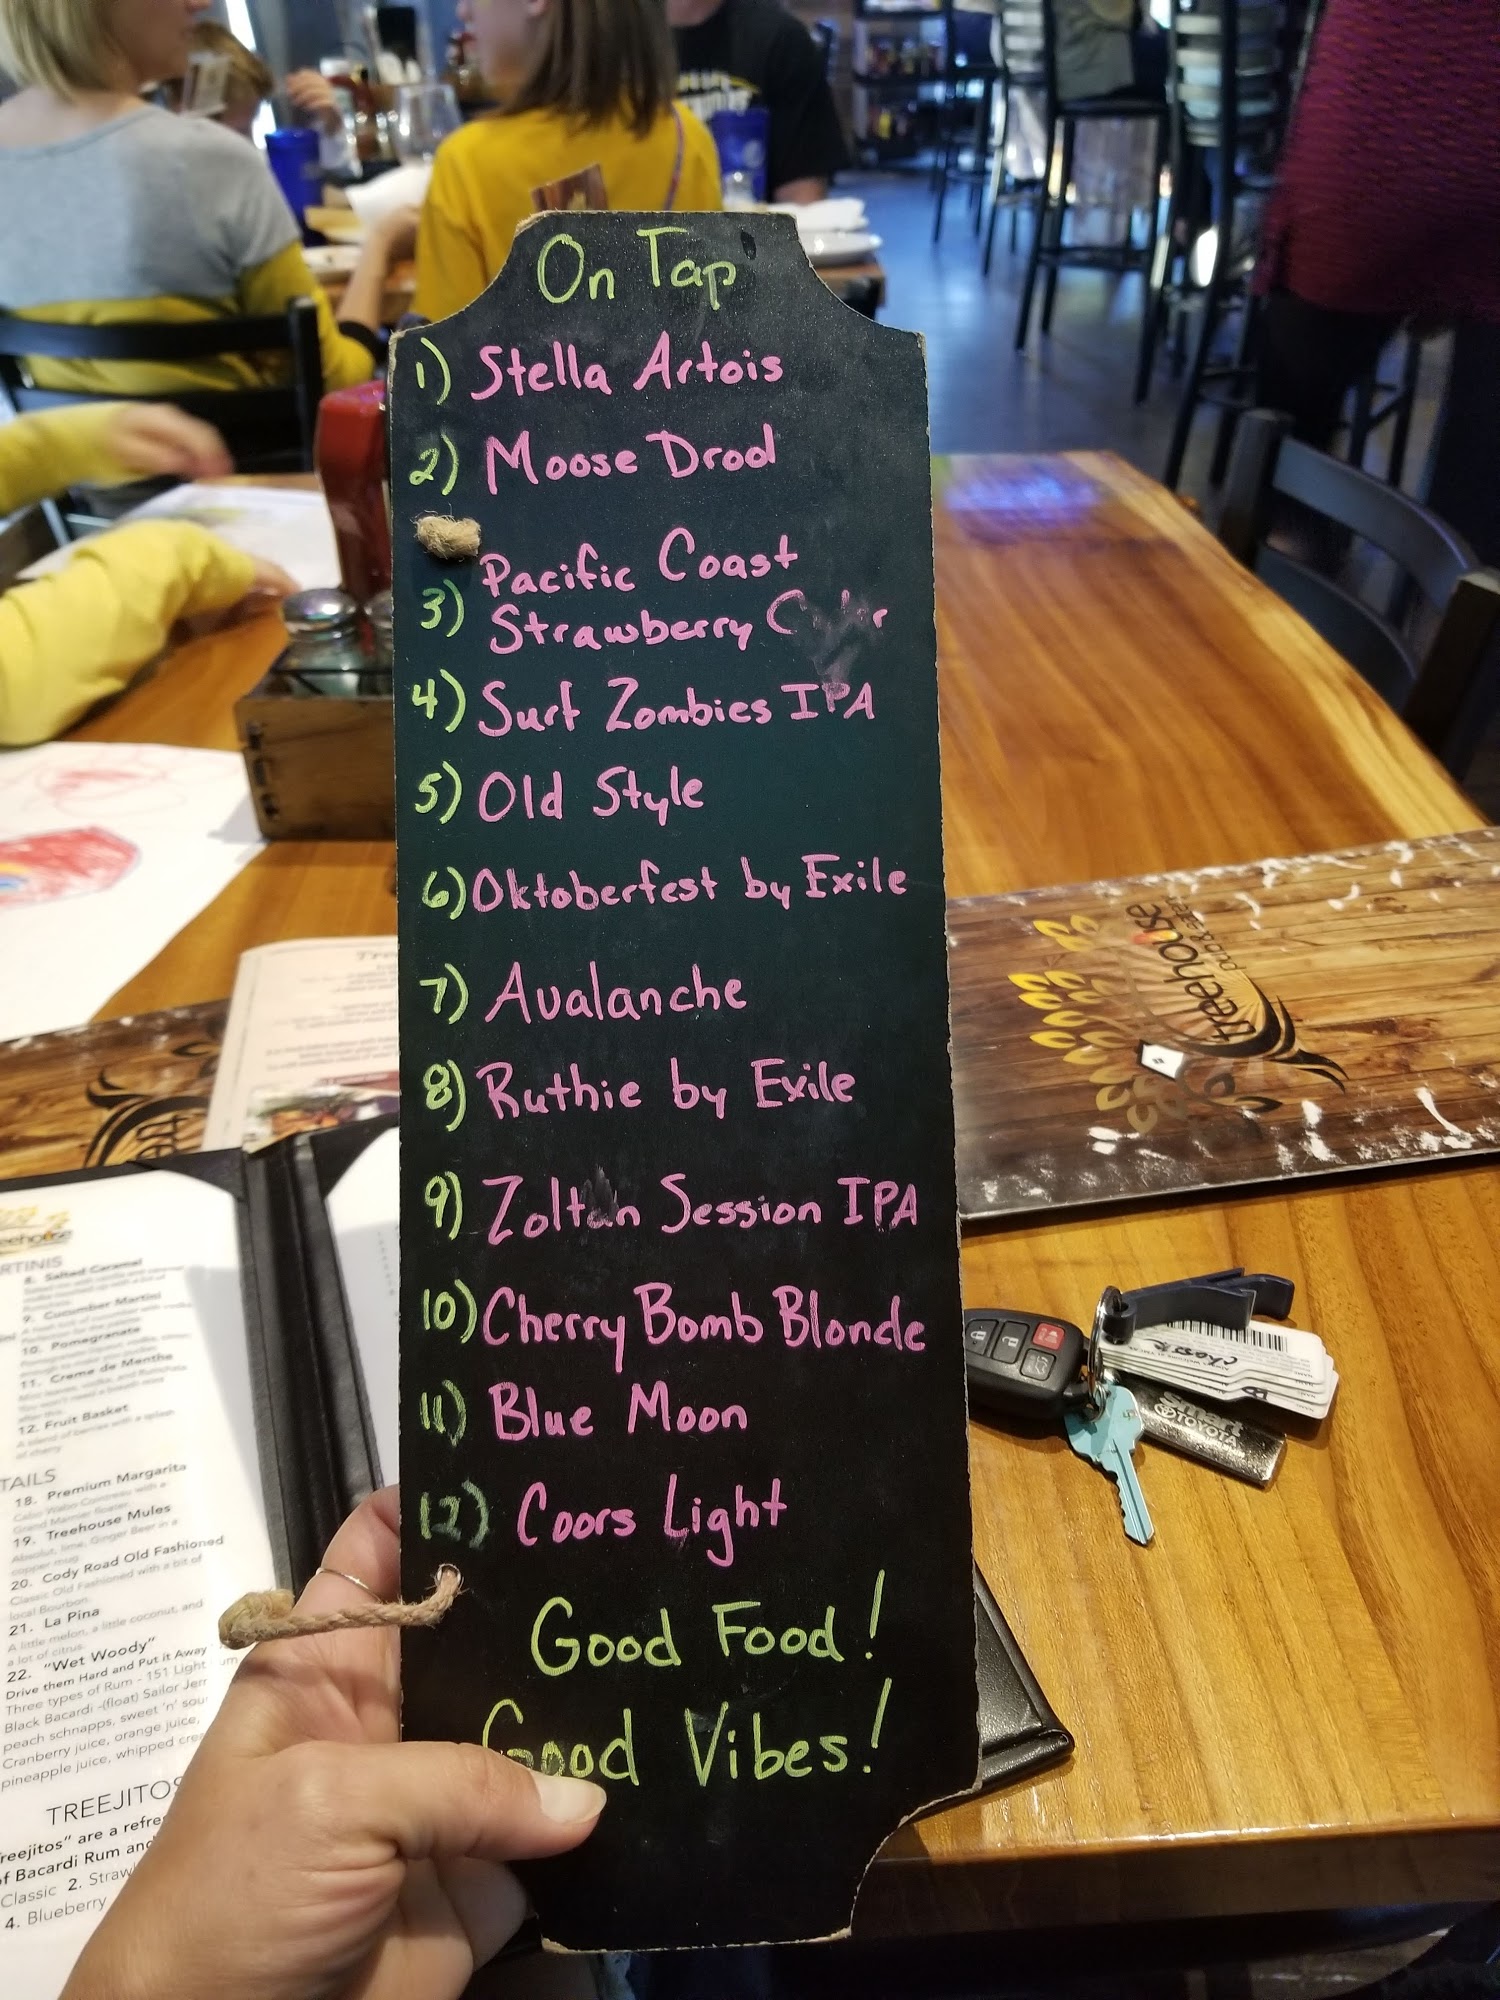 On Tap
1) Stella Artois
2) Moose Drool
3) Pacific Coast
Strawberry
4) Surf Zombies IPA
5) Old Style
6) Oktoberfest by Exile
7) Avalanche
8) Ruthie by Exile
9) Zoltan Session IPA
10) Cherry Bomb Blonde
11) Blue Moon
12) Coors Light
Good Food!
Good Vibes!
treehouse
pub & eatery
Smart
TOYOTA
8. Salted Caramel
9. Cucumber Martini
10. Pomegranate
11. Creme de Menthe
12. Fruit Basket
A blend of berries with a splash
of cherry
TAILS
18. Premium Margarita
19. Treehouse Mules
Absolut, lime, Ginger Beer in a
copper mug
20. Cody Road Old Fashioned
Classic Old Fashioned with a bit of
local Bourbon.
21. La Pina
A little melon, a little coconut, and
a lot of citrus.
22. "Wet Woody"
Drive them Hard and Put it Away
Three types of Rum - 151 Light
Black Bacardi -(float) Sailor Jerr
peach schnapps, sweet 'n' sou
Cranberry juice, orange juice,
pineapple juice, whipped cre
TREEJITOS
reejitos" are a refre
of Bacardi Rum and
Classic 2. Straw
4. Blueberry